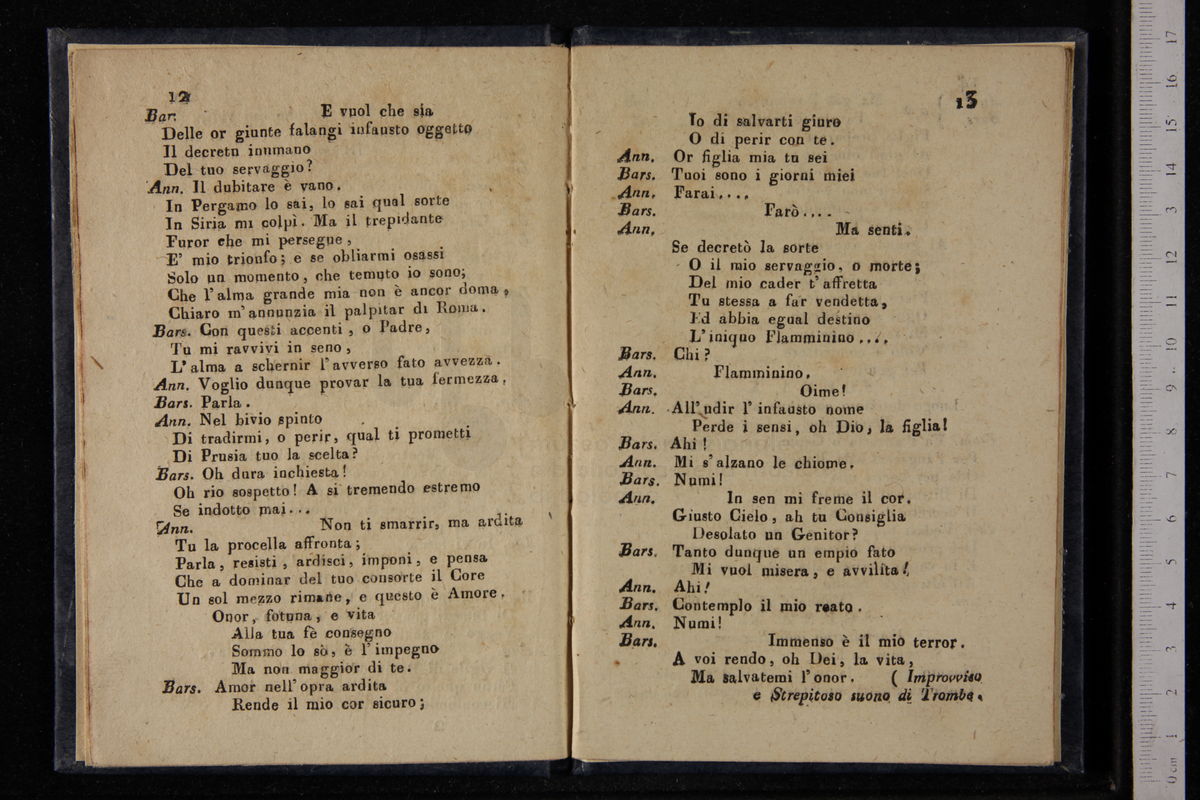 12
Bar. E vuol che sia
Delle or giunte falangi infausto oggetto
Il decreto inumano
Del tuo servaggio?
Ann. Il dubitare è vano.
In Pergamo lo sai, lo sai qual sorte
In Siria mi colpì. Ma il trepidante
Furor che mi persegue,
E' mio trionfo; e se obliarmi osassi
Solo un momento, che temuto io sono;
Che l'alma grande mia non è ancor doma,
Chiaro m'annunzia il palpitar di Roma.
Bars. Con questi accenti, o Padre,
Tu mi ravvivi in seno,
L'alma a schernir l'avverso fato avvezza.
Ann. Voglio dunque provar la tua fermezza.
Bars. Parla.
Ann. Nel bivio spinto
Di tradirmi, o perir, qual ti prometti
Di Prusia tuo la scelta?
Bars. Oh dura inchiesta!
Oh rio sospetto! A si tremendo estremo
Se indotto mai...
Ann. Non ti smarrir, ma ardita
Tu la procella affronta;
Parla, resisti, ardisci, imponi, e pensa
Che a dominar del tuo consorte il Core
Un sol mezzo rimane, e questo è Amore.
Onor, fotuna, e vita
Alla tua fè consegno
Sommo lo sò, è l'impegno
Ma non maggior di te.
Bars. Amor nell'opra ardita
Rende il mio cor sicuro;
13
Io di salvarti giuro
O di perir con te.
Ann. Or figlia mia tu sei
Bars. Tuoi sono i giorni miei
Ann. Farai....
Bars. Farò....
Ann. Ma senti.
Se decretò la sorte
O il mio servaggio, o morte;
Del mio cader t'affretta
Tu stessa a far vendetta,
Ed abbia egual destino
L'iniquo Flamminino....
Bars. Chi?
Ann. Flamminino.
Bars. Oime!
Ann. All'udir l'infausto nome
Perde i sensi, oh Dio, la figlia!
Bars. Ahi!
Ann. Mi s'alzano le chiome.
Bars. Numi!
Ann. In sen mi freme il cor.
Giusto Cielo, ah tu Consiglia
Desolato un Genitor?
Bars. Tanto dunque un empio fato
Mi vuol misera, e avvilita!
Ann. Ahi!
Bars. Contemplo il mio reato.
Ann. Numi!
Bars. Immenso è il mio terror.
A voi rendo, oh Dei, la vita,
Ma salvatemi l'onor. ( Improvviso
e Strepitoso suono di Trombe.
0 cm 1 2 3 4 5 6 7 8 9 10 11 12 3 14 15 16 17